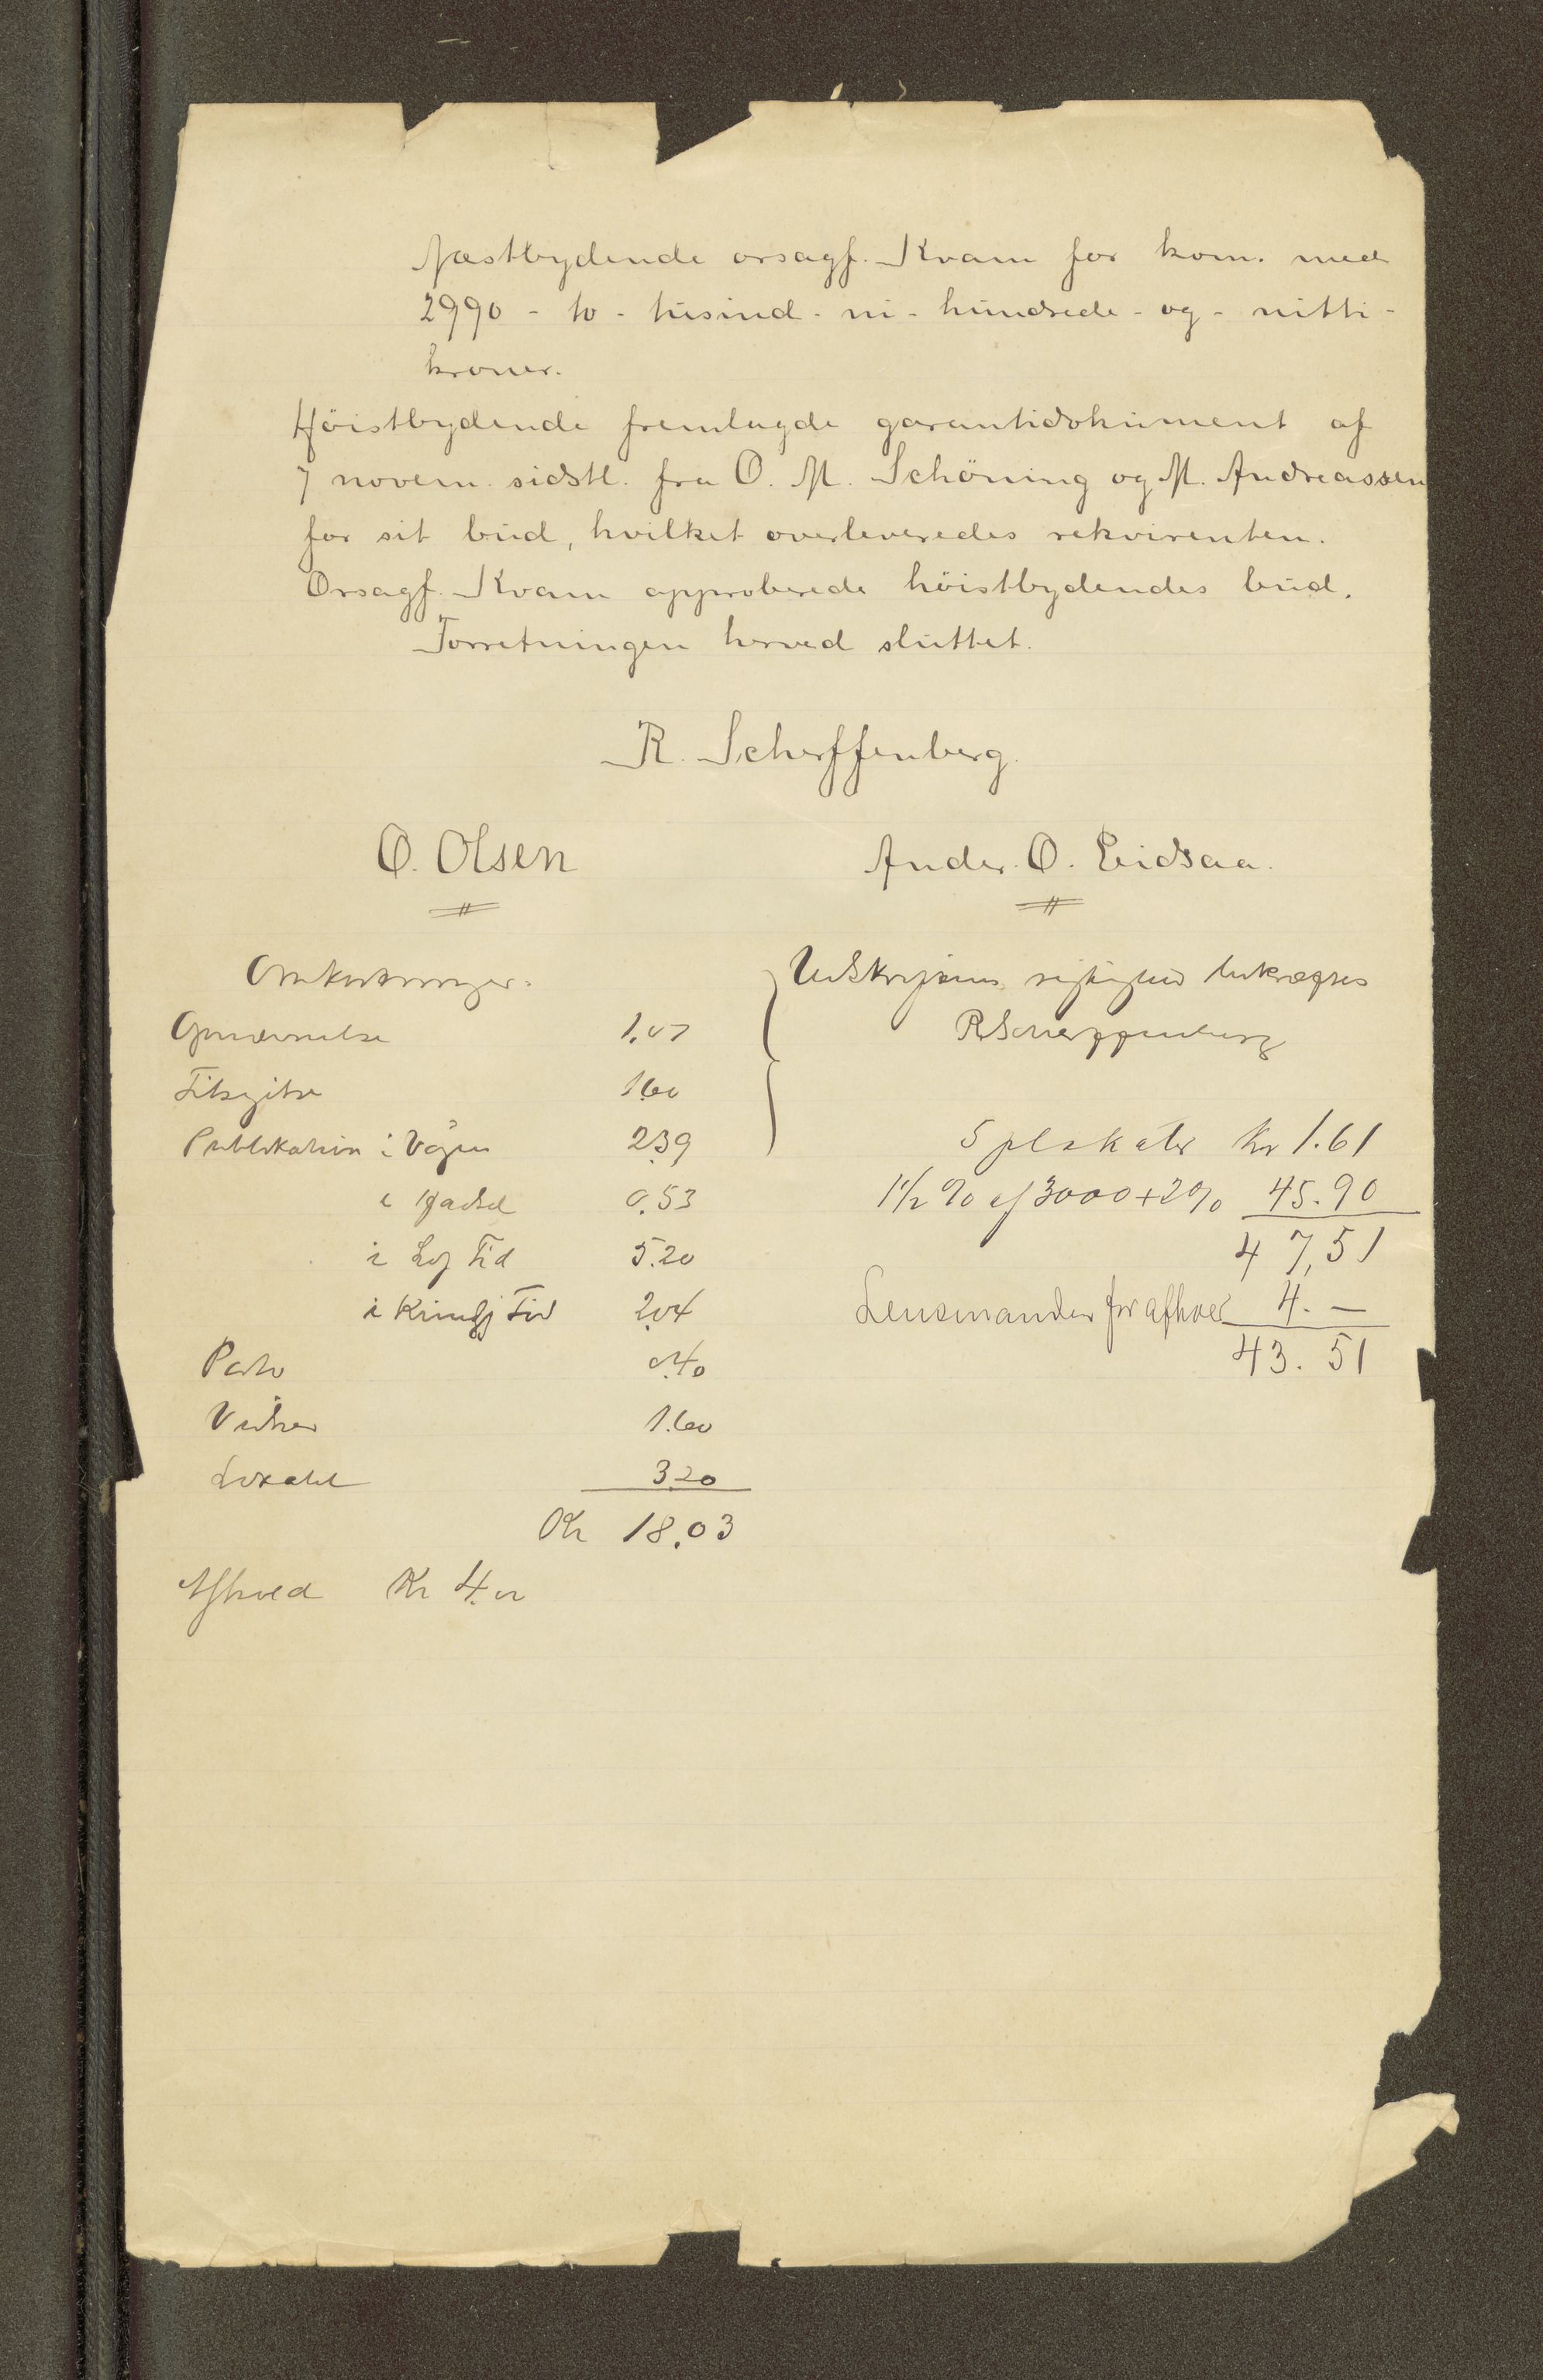 Næstbydende orsagf. Kvam for kom. med
2990 - to - tusind - ni - hundrede - og - nitti -
kroner.
Höistbydende fremlagde garantidokument af
7 novem. sidstl. fra O. M. Schöning og M. Andreassen
for sit bud, hvilket overleveredes rekvirenten.
Orsagf. Kvam approberede höistbydendes bud.
Forretningen herved sluttet.
R. Scherffenberg.
O. Olsen
Ander. O. Eidsaa.
Omkostninger.
Opnævnelse 1.07
Tilsigelse 1.60
Publikation i Vågen 2.39
i 0.53
i Tid 5.20
i Kundgj Tid 2.04
Porto 0.40
Vidner 1.60
Lokalet 3.20
Kr 18.03
Afhold Kr 4.00
Udskriftens rigtighed bekræftes
R Scherffenberg
5 plakater Kr 1.61
1 1/2 % af 3000 + 2% 45.90
47,51
Lensmanden for afhold 4. —
43. 51